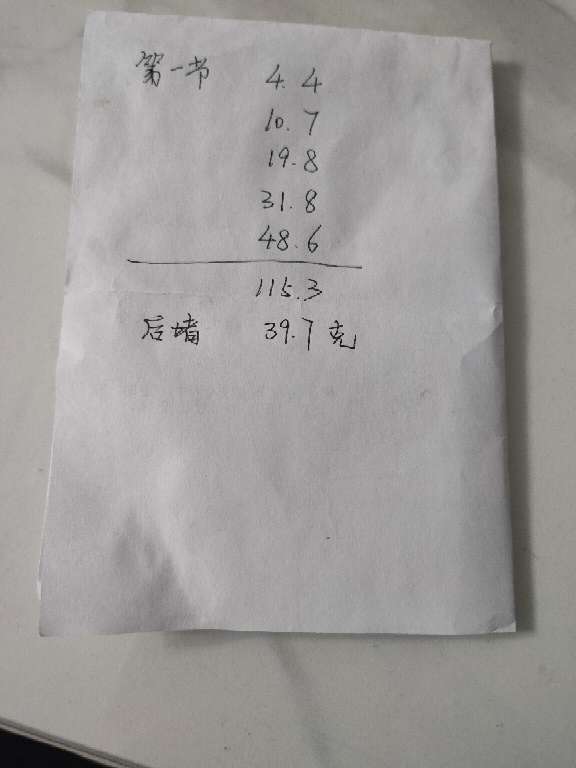 第一节 4.4
10.7
19.8
31.8
48.6
115.3
后堵 39.7克